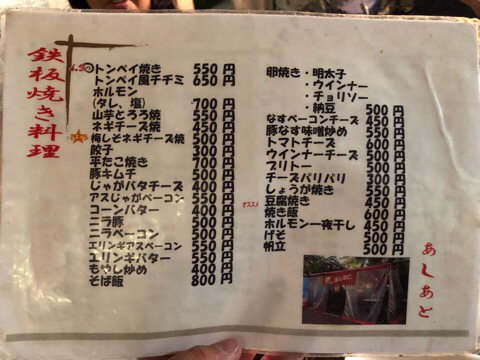 鉄板焼き料理
トンペイ焼き 550円
トンペイ風チヂミ 650円
ホルモン
(タレ、塩) 700円
山芋とろろ焼 550円
ネギチーズ焼 450円
梅しそネギチーズ焼 500円
餃子 300円
平たこ焼き 700円
豚キムチ 500円
じゃがバタチーズ 400円
アスじゃがベーコン 550円
コーンバター 400円
ニラ豚 500円
ニラベーコン 500円
エリンギアスベーコン 550円
エリンギバター 550円
もやし炒め 400円
そば飯 800円
卵焼き・明太子
・ウインナー
・チョリソー
・納豆 500円
なすベーコンチーズ 450円
豚なす味噌炒め 550円
トマトチーズ 600円
ウインナーチーズ 500円
ブリトー 500円
チーズパリパリ 300円
しょうが焼き 550円
オススメ 豆腐焼き 450円
焼き飯 600円
ホルモン一夜干し 450円
げそ 500円
帆立 500円
あしあと